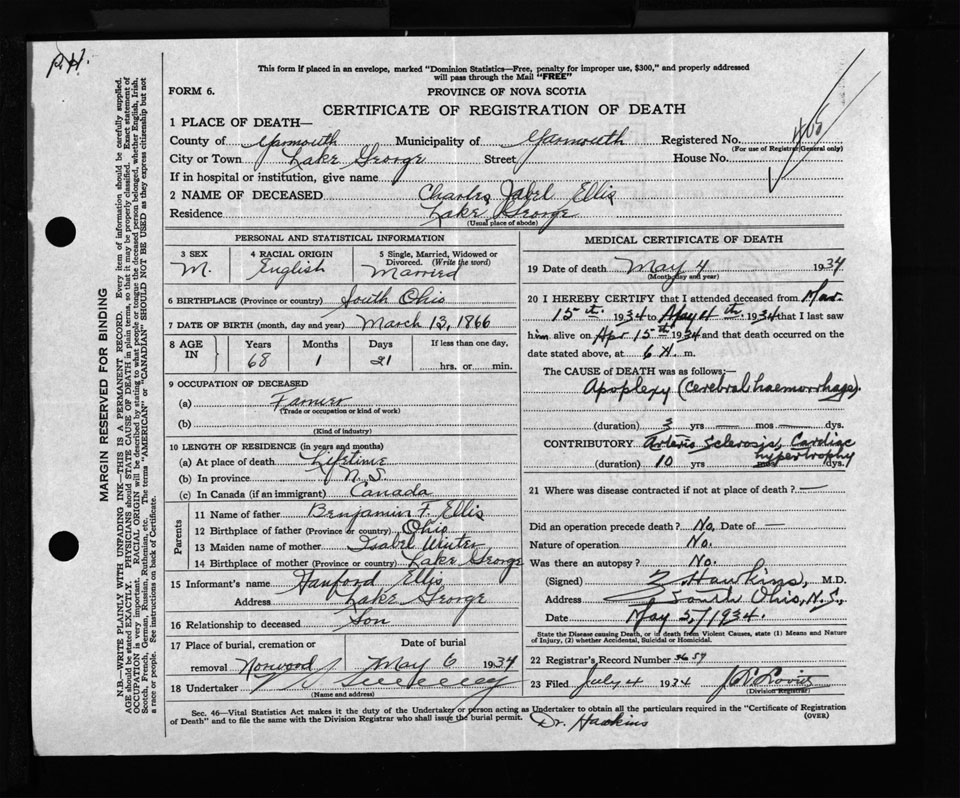 P.H.
This form if placed in an envelope, marked "Dominion Statistics—Free, penalty for improper use, $300," and properly addressed
will pass through the Mail "FREE"
FORM 6.
PROVINCE OF NOVA SCOTIA
CERTIFICATE OF REGISTRATION OF DEATH
1 PLACE OF DEATH—
County of Yarmouth Municipality of Yarmouth Registered No.
(For use of Registrar General only)
City or Town Lake George Street House No.
If in hospital or institution, give name
2 NAME OF DECEASED Charles Ellis
Residence Lake George
(Usual place of abode)
PERSONAL AND STATISTICAL INFORMATION
3 SEX 4 RACIAL ORIGIN 5 Single, Married, Widowed or Divorced. (Write the word)
M. English Married
6 BIRTHPLACE (Province or country) South Ohio
7 DATE OF BIRTH (month, day and year) March 13, 1866
8 AGE IN Years Months Days If less than one day,
68 1 21 hrs. or min.
9 OCCUPATION OF DECEASED
(a) Farmer
(Trade or occupation or kind of work)
(b)
(Kind of industry)
10 LENGTH OF RESIDENCE (in years and months)
(a) At place of death Lifetime
(b) In province N.S.
(c) In Canada (if an immigrant) Canada
Parents
11 Name of father Benjamin F. Ellis
12 Birthplace of father (Province or country) Ohio
13 Maiden name of mother Isabel Winter
14 Birthplace of mother (Province or country) Lake George
15 Informant's name Hanford Ellis
Address Lake George
16 Relationship to deceased Son
17 Place of burial, cremation or Date of burial
removal Norwood May 6 1934
18 Undertaker
(Name and address)
MEDICAL CERTIFICATE OF DEATH
19 Date of death May 4 1934
(Month, day and year)
20 I HEREBY CERTIFY that I attended deceased from Mar.
15th 1934 to May 4th 1934 that I last saw
him alive on Apr 15th 1934 and that death occurred on the
date stated above, at 6 A. m.
The CAUSE OF DEATH was as follows:—
Apoplexy (cerebral haemorrhage)
(duration) 3 yrs — mos — dys.
CONTRIBUTORY Arterio Sclerosis, Cardiac
hypertrophy
(duration) 10 yrs mos dys.
21 Where was disease contracted if not at place of death? —
Did an operation precede death? No, Date of —
Nature of operation No.
Was there an autopsy? No.
(Signed) Hawkins, M.D.
Address South Ohio, N.S.
Date May 5, 1934.
State the Disease causing Death, or in death from Violent Causes, state (1) Means and Nature
of Injury, (2) whether Accidental, Suicidal or Homicidal.
22 Registrar's Record Number 3659
23 Filed July 4 1934
(Division Registrar)
Sec. 46—Vital Statistics Act makes it the duty of the Undertaker or person acting as Undertaker to obtain all the particulars required in the "Certificate of Registration
of Death" and to file the same with the Division Registrar who shall issue the burial permit. (OVER)
Dr. Hawkins
MARGIN RESERVED FOR BINDING
N.B.—WRITE PLAINLY WITH UNFADING INK—THIS IS A PERMANENT RECORD. Every item of information should be carefully supplied.
AGE should be stated EXACTLY. PHYSICIANS should STATE CAUSE OF DEATH in plain terms, so that it may be properly classified. Exact statement of
OCCUPATION is very important. RACIAL ORIGIN will be described by stating to what people or tongue the deceased person belonged, whether English, Irish,
Scotch, French, German, Russian, Ruthenian, etc. The terms "AMERICAN" or "CANADIAN" SHOULD NOT BE USED as they express citizenship but not
a race or people. See instructions on back of Certificate.